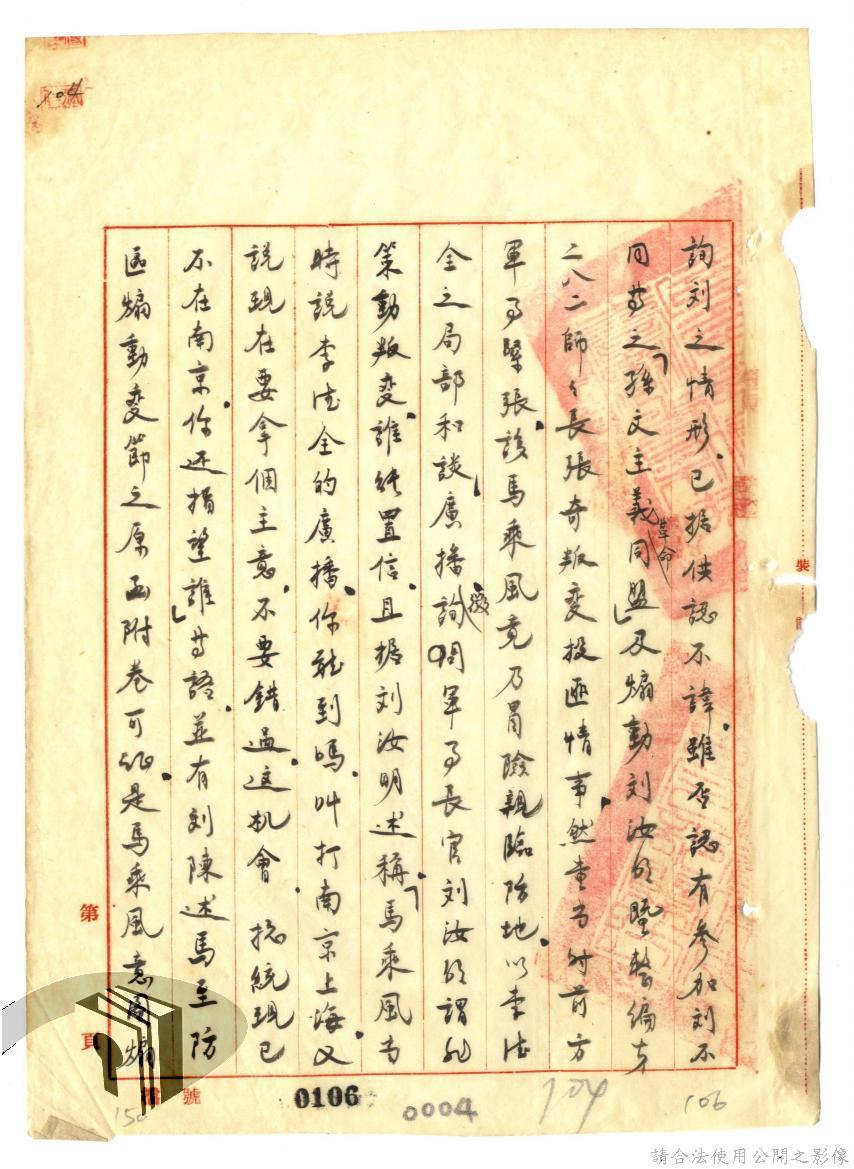 詢刘之情形已据供認不諱雖否認有參加刘不
同等之「孫文主義革命同盟」及煽動刘汝明暨整编
二八二師々長張奇叛变投匪情事然當时前方
軍事緊張該馬乘風竟乃冒險親臨防地以李
全之局部和談廣播詞
策動叛变誰能置信且据刘汝明述稱「馬乘風
時說李 全的廣播你聽到嗎叫打南京上海又
說現在要拿個主意不要錯過这机會 総統現已
不在南京你还指望誰」等語並有刘陳述馬至防
區煽動变節之原函附卷可征是馬乘風意圖煽
裝
第
頁
檔號
0106
0004
104
106
150
104
請合法使用公開之影像